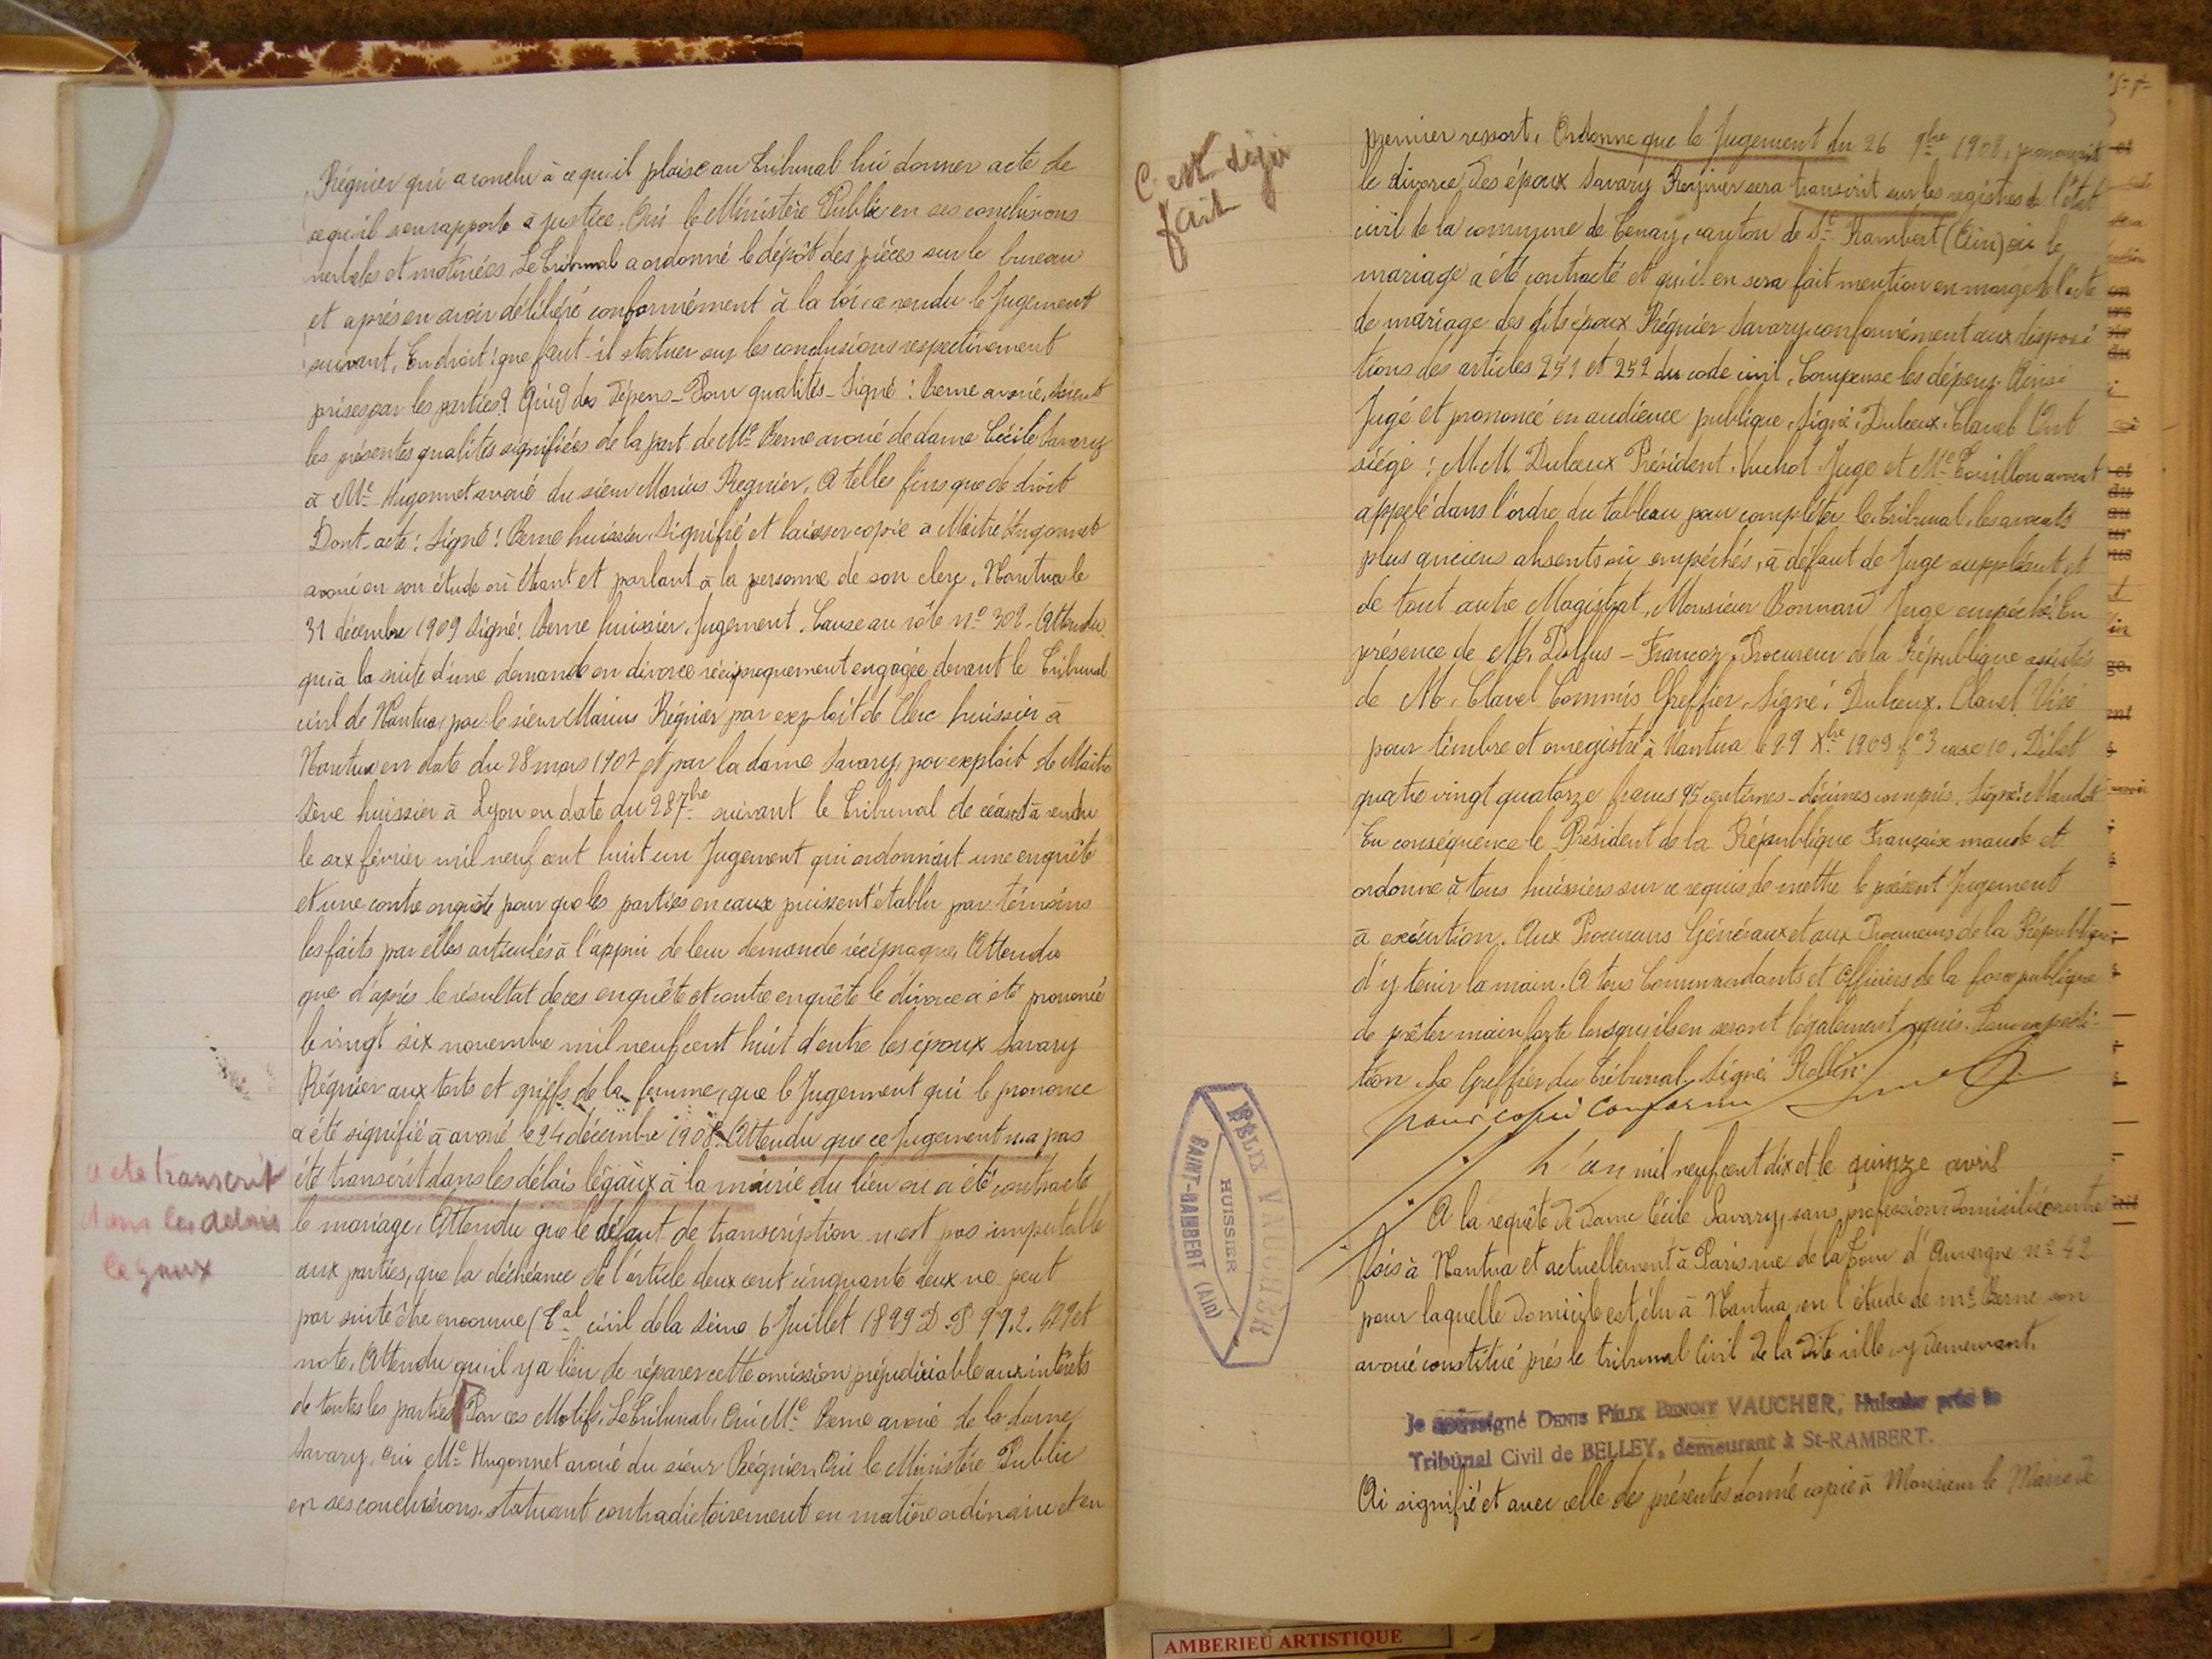 Régnier qui a conclu à ce qu'il plaise au Tribunal lui donner acte de
ce qu'il s'en rapporte à justice. Oui le Ministère Public en ses conclusions
verbales et motivées, Le Tribunal a ordonné le dépôt des pièces sur le bureau
et après en avoir délibéré conformément à la loi, a rendu le Jugement
suivant, En droit : que faut-il statuer sur les conclusions respectivement
prises par les parties ? Quid des Dépens - Pour qualités - Signé : Berne avoué, Soient
les présentes qualités signifiées de la part de Me Berne avoué de dame Cécile Savary
à Me Hugonnet avoué du sieur Marius Regnier, A telles fins que de droit
Dont acte : Signé : Berne huissier. Signifié et laisser copie à Maitre Hugonnet
avoué en son étude où étant et parlant à la personne de son clerc, Nantua le
31 décembre 1909 Signé : Berne huissier. Jugement. Cause au rôle no 302. Attendu
qu'à la suite d'une demande en divorce réciproquement engagée devant le Tribunal
civil de Nantua, par le sieur Marius Régnier par exploit de Clerc huissier à
Nantua en date du 28 mars 1907 et par la dame Savary, par exploit de Maitre
Sève huissier à Lyon en date du 28 7bre suivant le Tribunal de céans a rendu
le six février mil neuf cent huit un Jugement qui ordonnait une enquête
et une contre enquête pour que les parties en cause puissent établir par témoins
les faits par elles articulés à l'appui de leur demande réciproque, Attendu
que d'après le résultat de ces enquête et contre enquête le divorce a été prononcé
le vingt six novembre mil neuf cent huit d'entre les époux Savary
Régnier aux torts et griefs de la femme, que le Jugement qui le prononce
a été signifié à avoué le 24 décembre 1908. Attendu que ce Jugement n'a pas
été transcrit dans les délais légaux à la mairie du lieu ou a été contracté
le mariage, Attendu que le défaut de transcription n'est pas imputable
aux parties, que la déchéance de l'article deux cent cinquante deux ne peut
par suite être encourue (Tal civil de la Seine 6 Juillet 1899 D.P 99.2. et
note, Attendu qu'il y a lieu de réparer cette omission préjudiciable aux intérêts
de toutes les parties Par ces Motifs, Le Tribunal, Oui Me Berne avoué de la dame
Savary, Oui Me Hugonnet avoué du sieur Régnier, Oui le Ministère Public
en ses conclusions, statuant contradictoirement en matière ordinaire et en
a été transcrit
dans les délais
légaux
C'est déjà
fait
premier ressort, Ordonne que le Jugement du 26 9bre 1908, prononçant
le divorce des époux Savary Regnier sera transcrit sur les registres de l'état
civil de la commune de Tenay, canton de St Rambert (Ain) où le
mariage a été contracté et qu'il en sera fait mention en marge de l'acte
de mariage des dits époux Régnier Savary conformément aux disposi
tions des articles 251 et 252 du code civil, Compense les dépens. Ainsi
Jugé et prononcé en audience publique, Signé, Duleux. Clavel Ont
siégé : M.M. Duleux Président. Vuchot Juge et Me Touillon avocat
appelé dans l'ordre du tableau pour compléter le Tribunal, les avocats
plus anciens absents ou empêchés, à défaut de Juge suppléant et
de tout autre Magistrat, Monsieur Bonnard Juge empêché. En
présence de Mr. Dolfus - Francoz, Procureur de la République assistés
de M. Clavel Commis Greffier, Signé : Duleux. Clavel. Visé
pour timbre et enregistré à Nantua le 29 Xbre 1909 fo 3 case 10, Débet
quatre vingt quatorze francs 95 centimes - décimes compris, Signé :
En conséquence le Président de la République Française mande et
ordonne à tous huissiers sur ce requis de mettre le présent Jugement
à exécution. Aux Procureurs Généraux et aux Procureurs de la République
d'y tenir la main. A tous Commandants et Officiers de la force publique
de prêter main forte lorsqu'ils en seront légalement requis. Pour expédi-
tion. Le Greffier du Tribunal, Signé : Rollin.
pour copie conforme
L'an mil neuf cent dix et le quinze avril
A la requête de Dame Cécile Savary, sans profession, domiciliée autre
fois à Nantua et actuellement à Paris rue de la Tour d'Auvergne no 42
pour laquelle domicile est élu à Nantua, en l'étude de me Berne son
avoué constitué près le tribunal Civil de la dite ville, y demeurant.
Je soussigné DENIS FÉLIX BENOIT VAUCHER, Huissier près le
Tribunal Civil de BELLEY, demeurant à St-RAMBERT.
Ai signifié et avec celle des présentes donné copie à Monsieur le Maire de
FELIX VAUCHER
HUISSIER
SAINT-RAMBERT (AIN)
AMBERIEU ARTISTIQUE